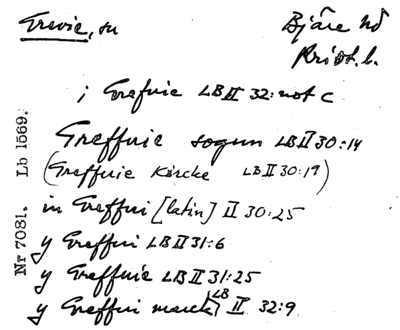 Grevie, sn Bjäre hd
Krist. l.
j Grefuie LB II 32: not c
Greffuie sogun LB II 30:14
(Greffuie Kircke LB II 30:19)
in Greffui [latin] II 30:25
y Greffui LB II 31:6
y Greffuie LB II 31:25
y Greffui marck LB II 32:9
Nr 7081. Lb 1569.